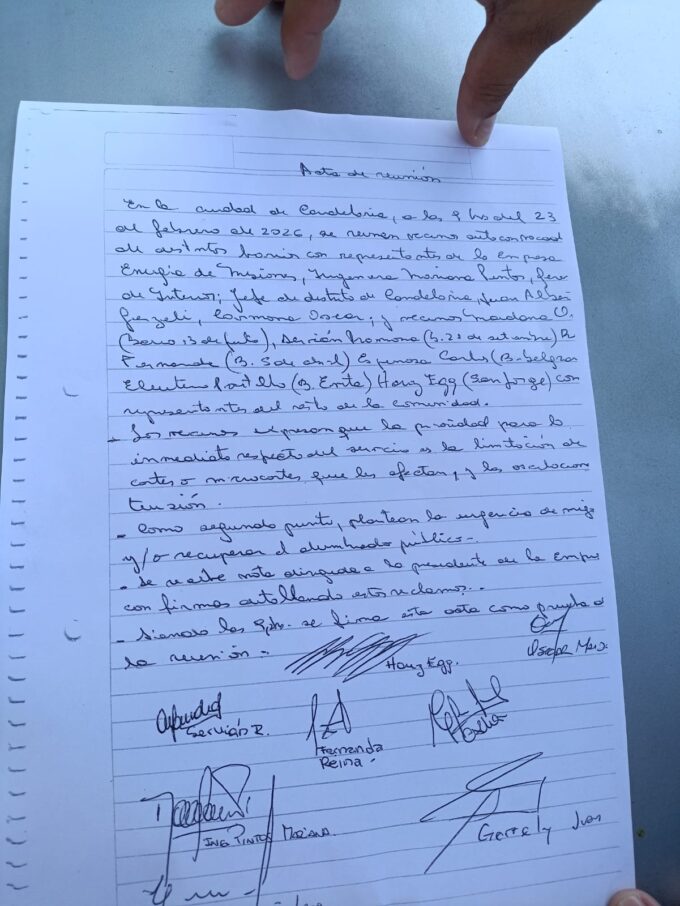 Acta de reunión
En la ciudad de Candelaria, a las 9 hs del 23
de febrero de 2026, se reunen vecinos autoconvocad
de distintos barrios con representantes de la empresa
Energía de Misiones, Ingeniera Mariana Pintos,
de Interior; Jefe de distrito de Candelaria, Juan
Carmona Oscar; y vecinos
(Barrio 13 de julio), Servián Ramona (B. 21 de setiembre) R
Fernanda (B. 3 de abril) Espinosa Carlos (B. Belgran
Portillo (B. Emta) Hanz Egg (San Jorge) con
representantes del resto de la comunidad.
- Los vecinos expresan que la prioridad para lo
inmediato respecto del servicio es la limitación de
cortes o microcortes que les afectan, y las oscilacione
tensión.
- Como segundo punto, plantean la urgencia de mejo
y/o recuperar el alumbrado público.-
- Se recibe nota dirigida a la presidente de la empre
con firmas avallando estos reclamos.-
- Siendo las hs. se firma esta acta como prueba d
la reunión.-
Hanz Egg.
Servián R.
Fernanda
Reina.-
Ing Pintos Mariana.
Juan